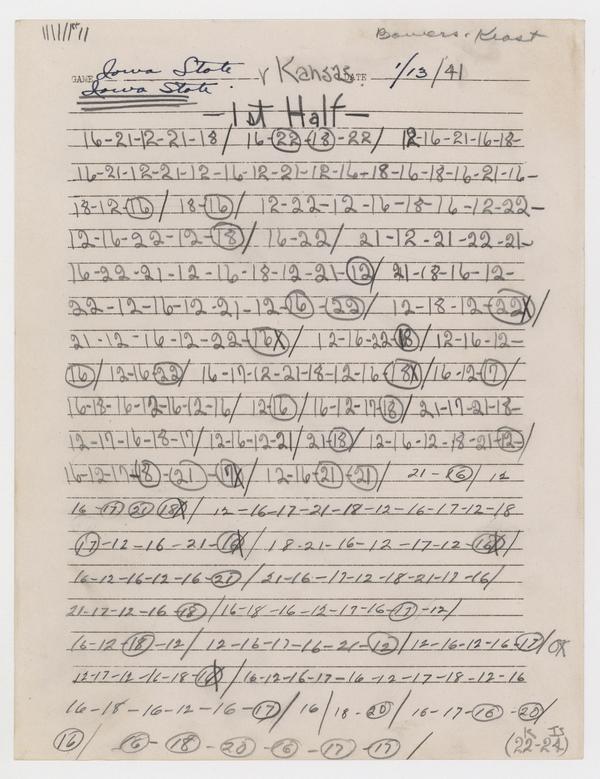 Bowers - Keast
GAME Iowa State v Kansas DATE 1/13/41
Iowa State.
- 1st Half -
16-21-12-21-18/ 16-22-18-22/ 12-16-21-16-18-
16-21-12-21-12-16-12-21-12-16-18-16-18-16-21-16-
18-12-16/ 18-16/ 12-22-12-16-18-16-12-22-
12-16-22-12-18/ 16-22/ 21-12-21-22-21-
16-22-21-12-16-18-12-21-12/ 21-18-16-12-
22-12-16-12-21-12-16-22/ 12-18-12-22X/
21-12-16-12-22-16X/ 12-16-22-18/ 12-16-12-
16/ 12-16-22/ 16-17-12-21-18-12-16-18X/16-12-17/
16-18-16-12-16-12-16/ 12-16/ 16-12-17-18/ 21-17-21-18-
12-17-16-18-17/ 12-16-12-21/ 21-18/ 12-16-12-18-21-12-/
16-12-17-18-21-17X/ 12-16-21-21/ 21-16/ 12
16-17-21-18X/ 12-16-17-21-18-12-16-17-12-18
17-12-16-21-16X/ 18-21-16-12-17-12-16X/
16-12-16-12-16-21/ 21-16-17-12-18-21-17-16/
21-17-12-16-18/ 16-18-16-12-17-16-17-12/
16-12-18-12/ 12-16-17-16-21-12/ 12-16-12-16-17/ OK
12-17-12-16-18-16X/ 16-12-16-17-16-12-17-18-12-16
16-18-16-12-16-17/ 16/ 18-20/ 16-17-16-20/
16/ 16-18-20-16-17-17/ K IS (22-24)